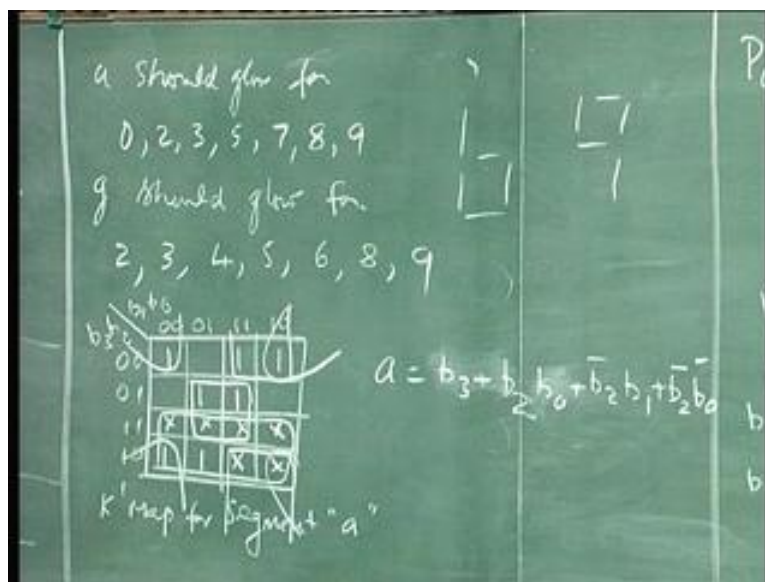 a should glow for
0, 2, 3, 5, 7, 8, 9
g should glow for
2, 3, 4, 5, 6, 8, 9
b₁b₀
b₃b₂ 00 01 11 10
00 1 1 1
01 1 1
11 x x x x
10 1 1 x x
K' Map for Segment "a"
a = b₃ + b₂b₀ + b̄₂b₁ + b̄₂b̄₀
P
b
b